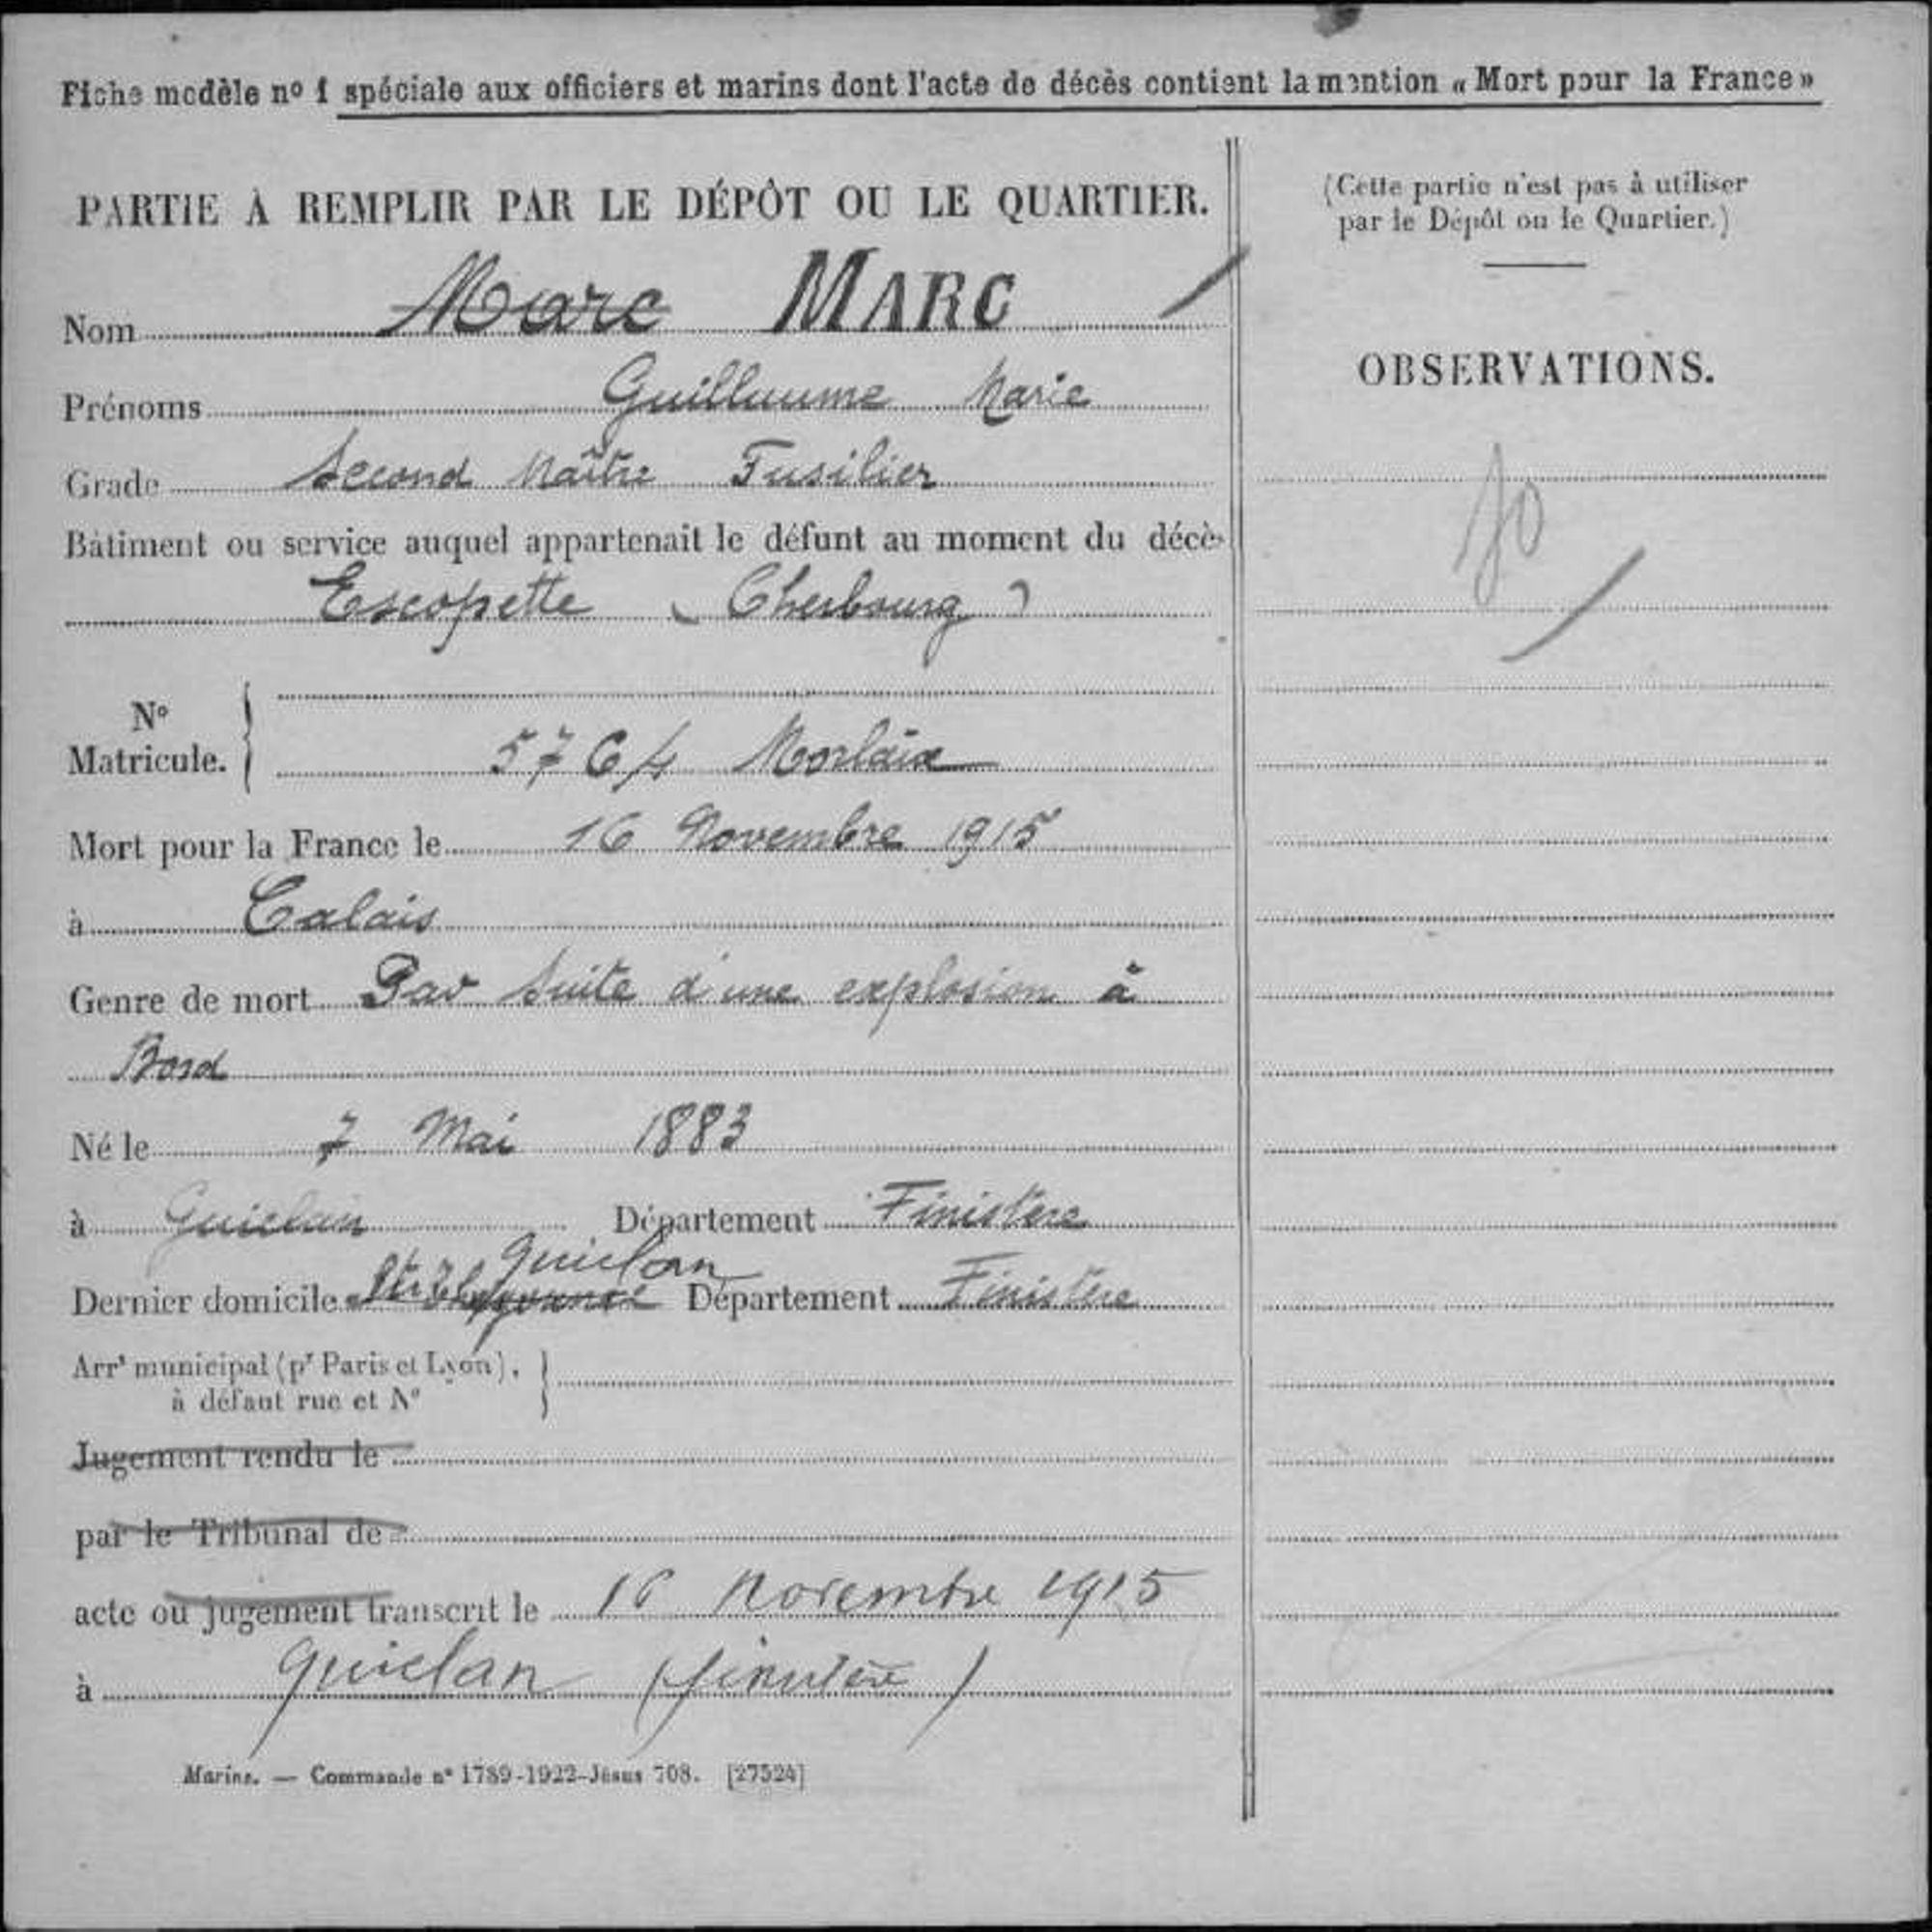 Fiche modèle nº 1 spéciale aux officiers et marins dont l'acte de décès contient la mention « Mort pour la France »
PARTIE À REMPLIR PAR LE DÉPÔT OU LE QUARTIER.
Nom Marc MARC
Prénoms Guillaume Marie
Grade Second Maître Fusilier
Bâtiment ou service auquel appartenait le défunt au moment du décès
Escopette (Cherbourg)
Nº
Matricule.
5764 Morlaix
Mort pour la France le 16 Novembre 1915
à Calais
Genre de mort Par suite d'une explosion à
Bord
Né le 7 Mai 1883
à Guiclan Département Finistère
Guiclan
Dernier domicile Département Finistère
Arrt municipal (pr Paris et Lyon),
à défaut rue et Nº
Jugement rendu le
par le Tribunal de
acte ou jugement transcrit le 16 Novembre 1915
à Guiclan (finistère)
Marine. — Commande nº 1789-1922-Jésus 708. [27524]
(Cette partie n'est pas à utiliser
par le Dépôt ou le Quartier.)
OBSERVATIONS.